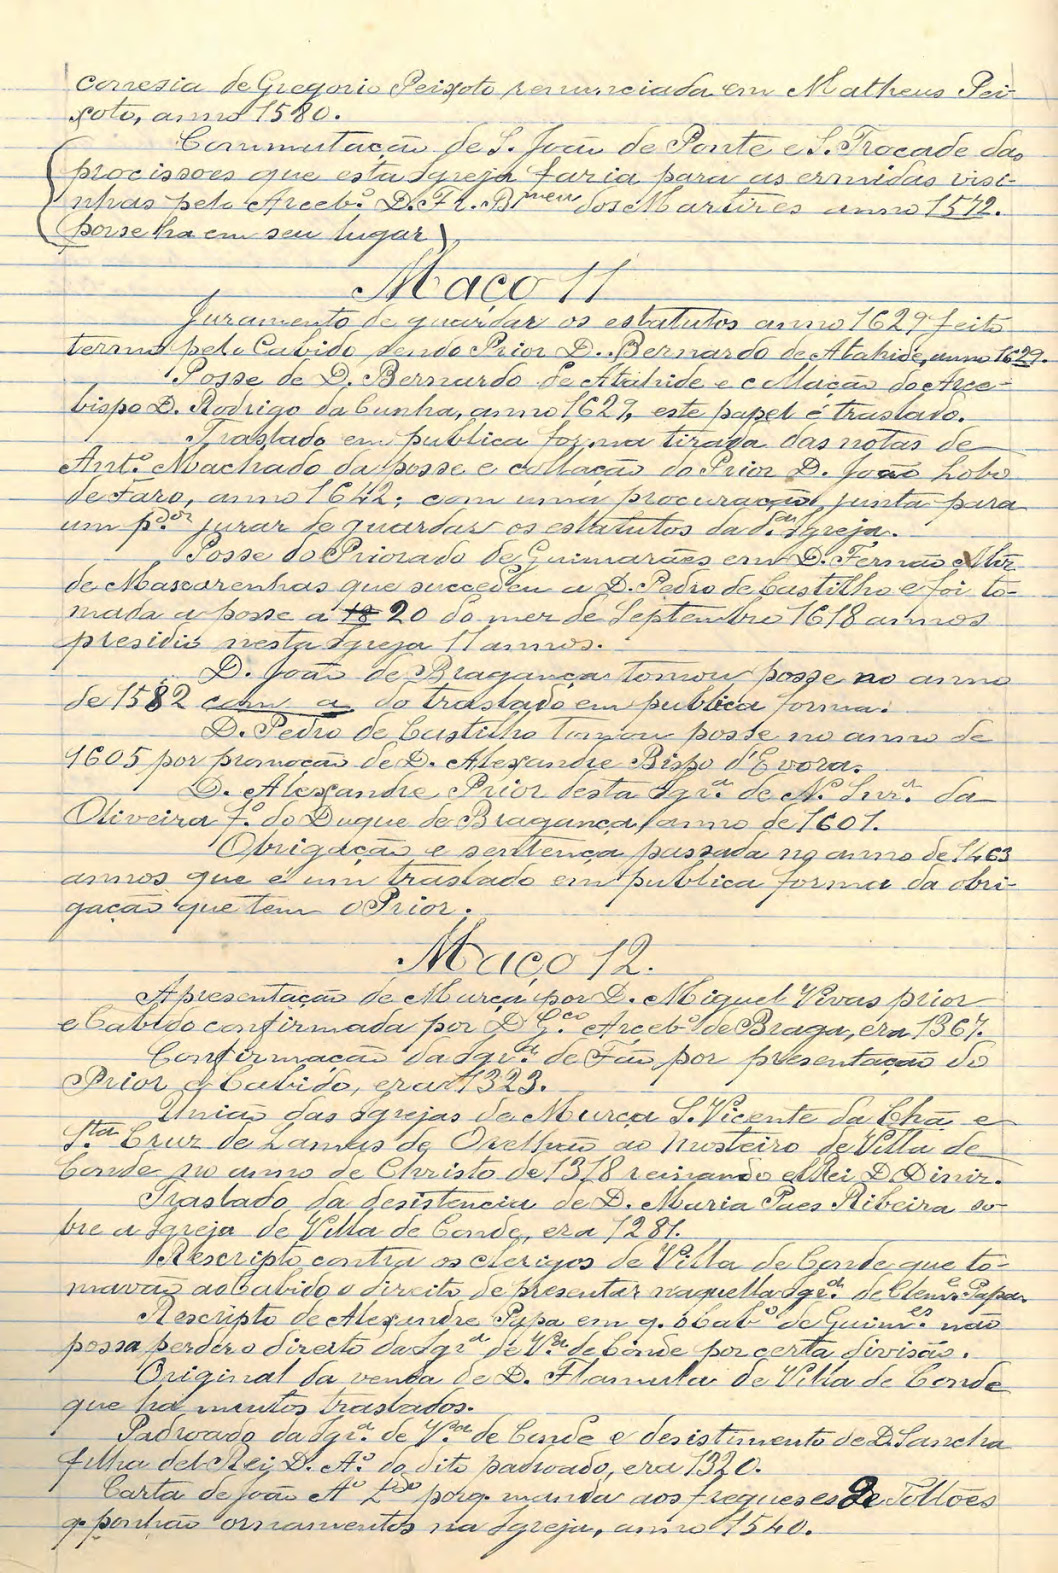 conesia de Gregorio Peixoto renunciada em Matheus Pei-
xoto, anno 1580.
Commutação de S. João de Ponte e S. Trocade das
procissoes que esta Igreja faria para as ermidas visi-
nhas pelo Arceb.º D. Fr. B.meu dos Martires anno 1572.
posse ha em seu lugar)
Maço 11
Juramento de guardar os estatutos anno 1629 feito
termo pelo Cabido sendo Prior D. Bernardo de Atahide, anno 1629.
Posse de D. Bernardo de Atahide e collação do Arce-
bispo D. Rodrigo da Cunha, anno 1629, este papel é traslado.
Traslado em publica forma tirada das notas de
Ant.º Machado da posse e collação do Prior D. João Lobo
de Faro, anno 1642; com uma procuração junta para
um p.dor jurar de guardar os estatutos da d.ta Igreja.
Posse do Priorado de Guimarães em D. Fernão Mir
de Mascarenhas que succedeu a D. Pedro de Castilho e foi to-
mada a posse a 18 20 do mez de Septembro 1618 annos
presidiu nesta Igreja 11 annos.
D. João de Bragança tomou posse no anno
de 1582 com a do traslado em publica forma.
D. Pedro de Castilho tomou posse no anno de
1605 por promoção de D. Alexandre Bispo d'Evora.
D. Alexandre Prior desta Igr.ª de N.ª Snr.ª da
Oliveira f.º do Duque de Bragança, anno de 1601.
Obrigação e sentença passada no anno de 1463
annos que é um traslado em publica forma da obri-
gação que tem o Prior.
Maço 12.
Apresentação de Murça por D. Miguel Vivas prior
e Cabido confirmada por D. G.co Arceb.º de Braga, era 1367.
Confirmação da Igr.ª de Fão por presentação do
Prior e Cabido, era 1323.
União das Igrejas de Murça S. Vicente da Chã e
S.ta Cruz de Lamas de Orelhão ao Mosteiro de Villa de
Conde no anno de Christo de 1318 reinando elRei D. Diniz.
Traslado da desistencia de D. Maria Paes Ribeira so-
bre a Igreja de Villa de Conde, era 1281.
Rescripto contra os clerigos de Villa de Conde que to-
mavão ao Cabido o direito de presentar naquella Igr.ª de Clem.e Papa.
Rescripto de Alexandre Papa em q. o Cab.º de Guim.es não
possa perder o direito da Igr.ª de V.ª de Conde por certa divisão.
Original da venda de D. Flamula de Villa de Conde
que ha muitos traslados.
Padroado da Igr.ª de V.ª de Conde e desistimento de D. Sancha
filha del Rei D. A.º do dito padroado, era 1320.
Carta de João A.º porq. manda aos freguezes de Tollões
q. ponhão ornamentos na Igreja, anno 1540.